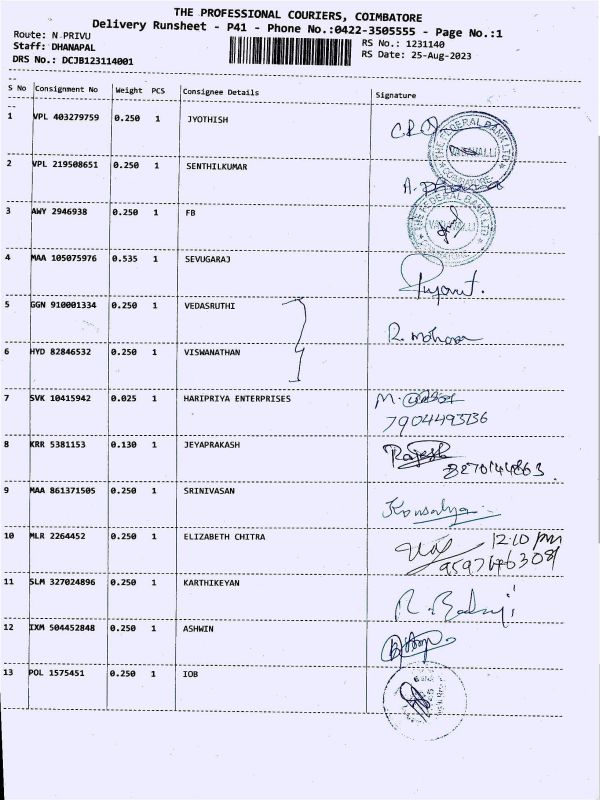 THE PROFESSIONAL COURIERS, COIMBATORE
Delivery Runsheet - P41 - Phone No.:0422-3505555 - Page No.:1
Route: N PRIVU
RS No.: 1231140
Staff: DHANAPAL
RS Date: 25-Aug-2023
DRS No.: DCJB123114001
S No Consignment No Weight PCS Consignee Details Signature
1 VPL 403279759 0.250 1 JYOTHISH
THE FEDERAL BANK LTD
2 VPL 219508651 0.250 1 SENTHILKUMAR
3 AWY 2946938 0.250 1 FB
THE FEDERAL BANK LTD
4 MAA 105075976 0.535 1 SEVUGARAJ
5 GGN 910001334 0.250 1 VEDASRUTHI
R. mohana
6 HYD 82846532 0.250 1 VISWANATHAN
7 SVK 10415942 0.025 1 HARIPRIYA ENTERPRISES
8 KRR 5381153 0.130 1 JEYAPRAKASH Rajesh
9 MAA 861371505 0.250 1 SRINIVASAN
Kousalya
10 MLR 2264452 0.250 1 ELIZABETH CHITRA 12.10 pm
11 SLM 327024896 0.250 1 KARTHIKEYAN
12 IXM 504452848 0.250 1 ASHWIN
13 POL 1575451 0.250 1 IOB